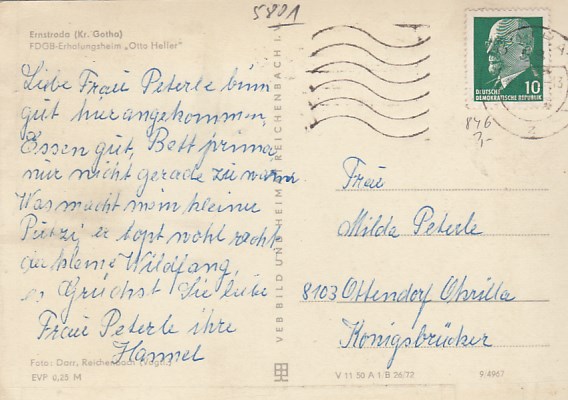 5801
Ernstroda (Kr. Gotha)
FDGB-Erholungsheim „Otto Heller"
Liebe Frau Peterle binn
gut hier angekommen,
Essen gut, Bett prima
nur nicht gerade zu warm
Was macht mein kleiner
Putzi, er topt wohl recht
der kleine Wildfang,
es Grüchst Sie liebe
Frau Peterle ihre
Hannel
Foto: Darr, Reichenbach (Vogtl.)
EVP 0,25 M
VEB BILD UND HEIM REICHENBACH I.
10
DEUTSCHE
DEMOKRATISCHE REPUBLIK
846
7,-
Frau
Milda Peterle
8103 Ottendorf Okrilla
Königsbrücker
V 11 50 A 1 B 26/72
9/4967